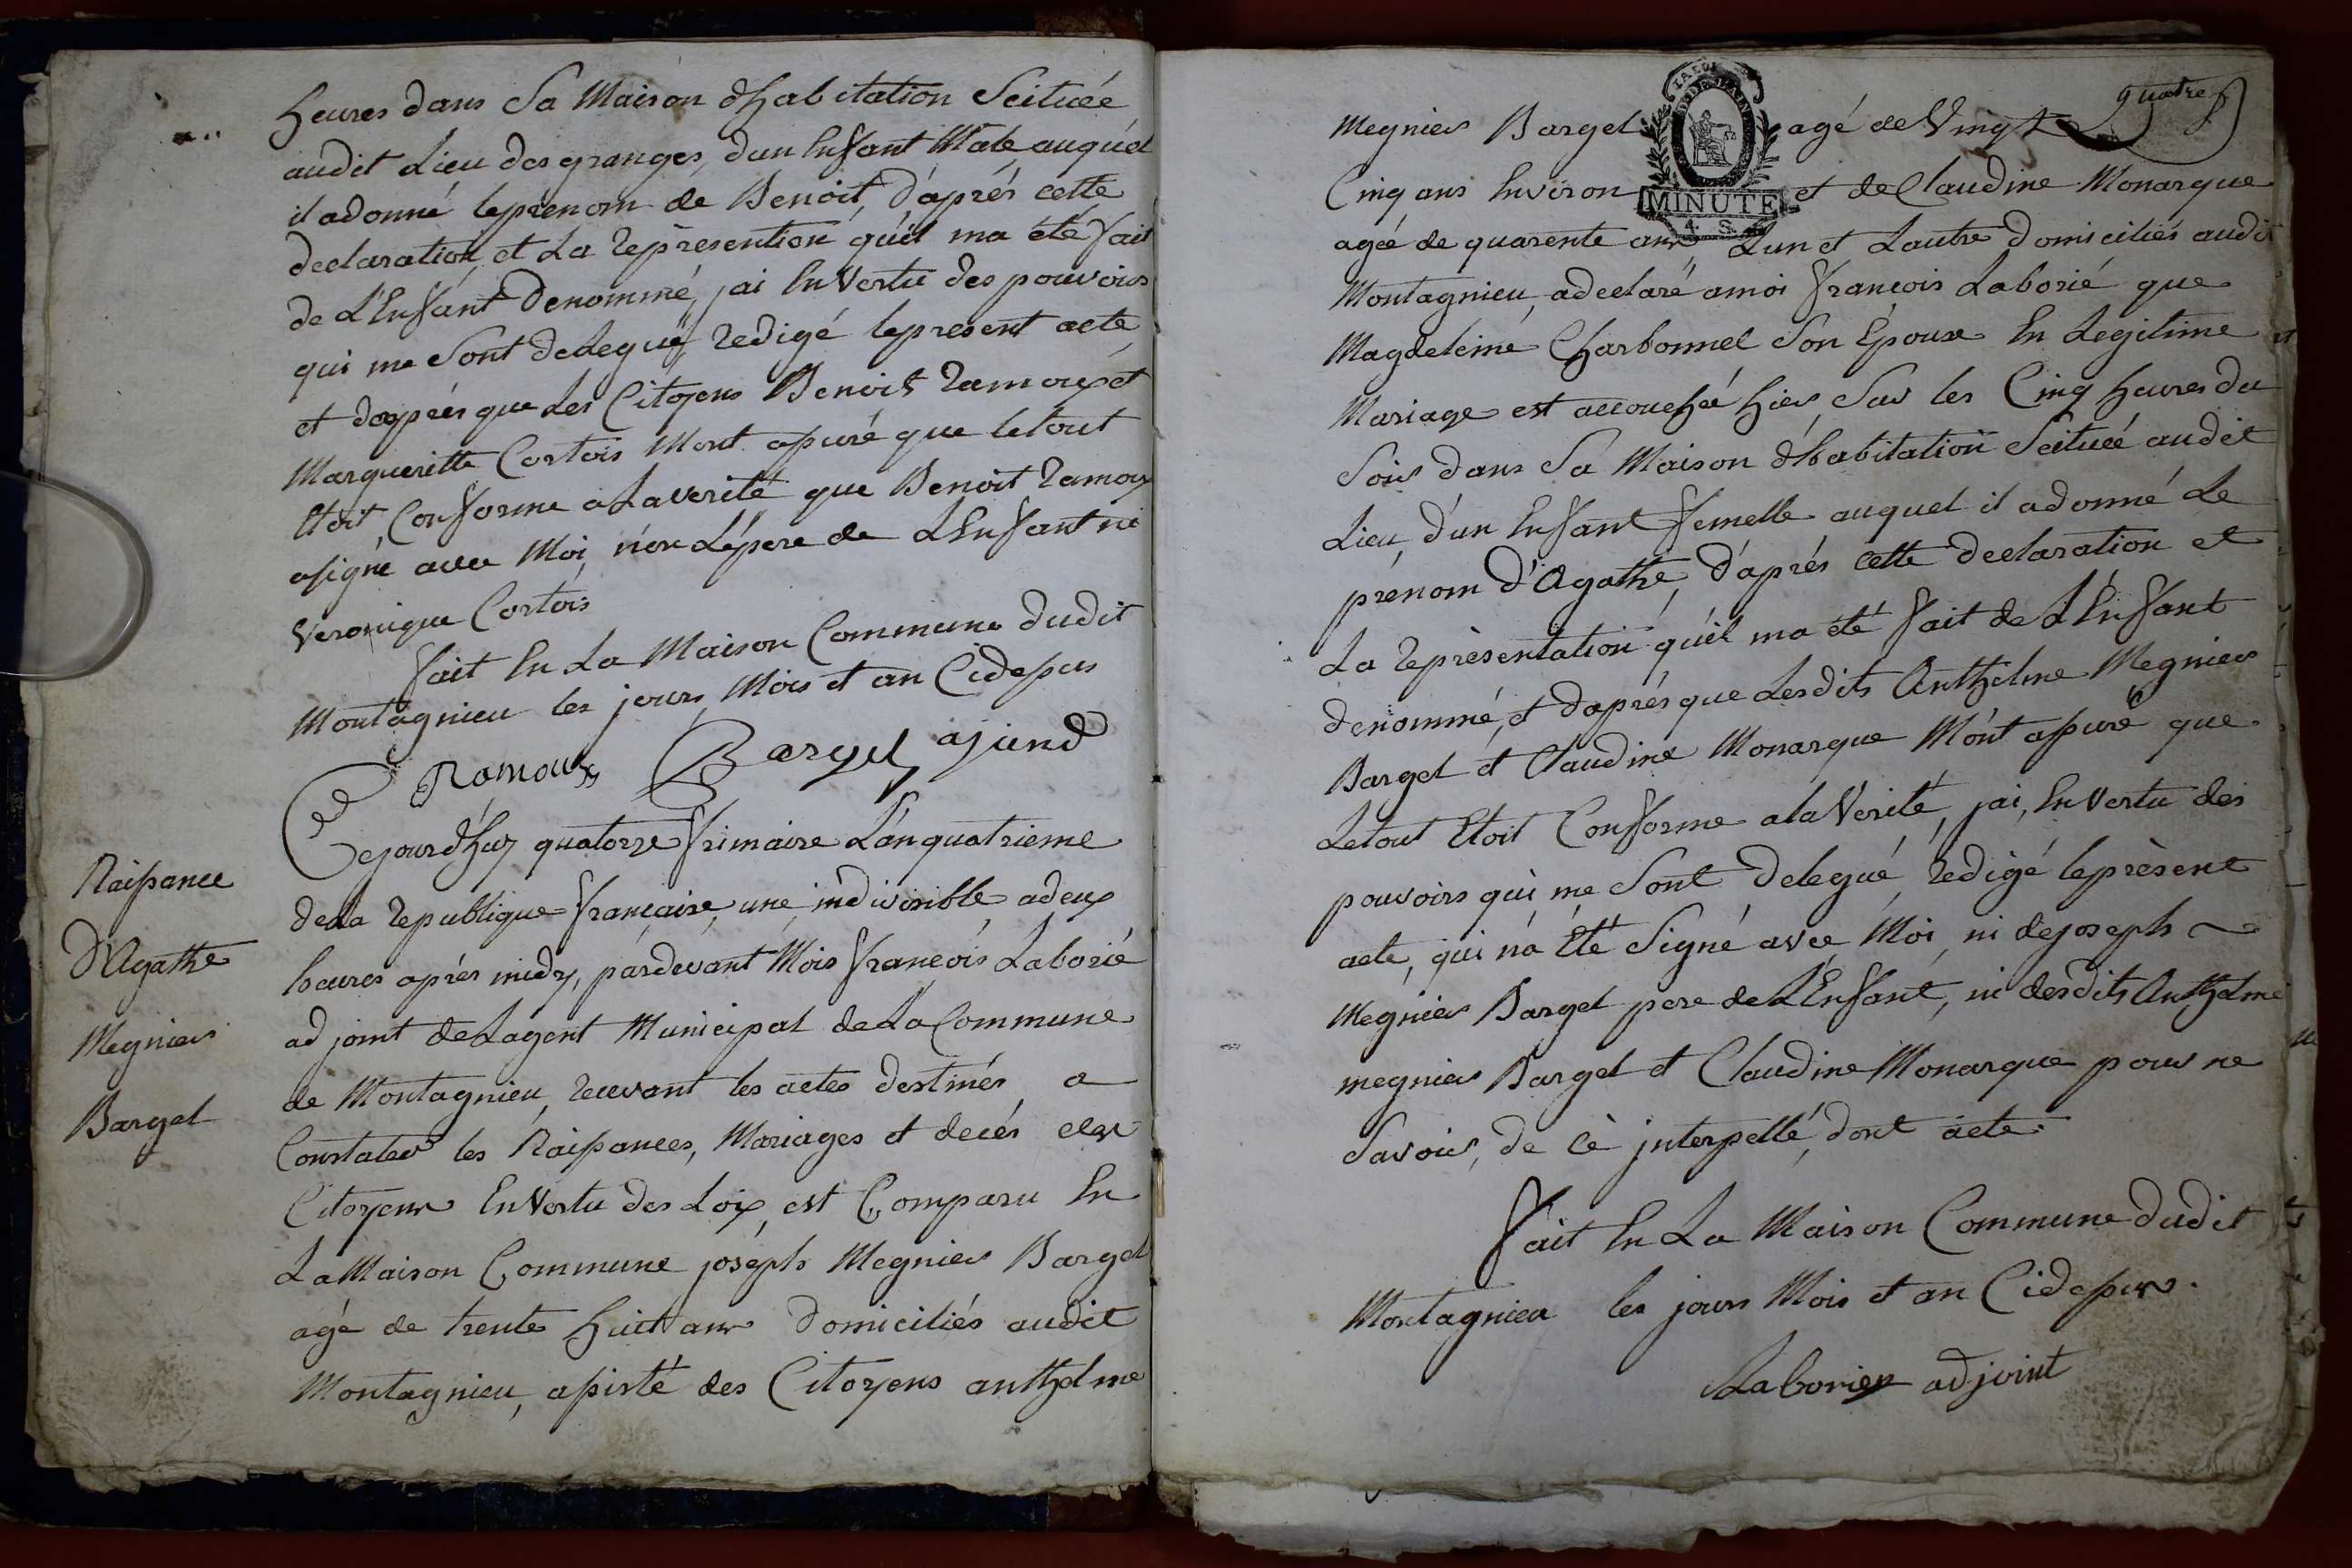 heures dans Sa Maison d'habitation Scituée
audit Lieu des granges, dun Enfant Male auquel
il adonné leprénom de Benoit, d'aprés cette
declaration, et La représention qu'il ma été fait
de L'Enfant denommé, jai En Vertu des pouvoirs
qui me Sont delegué, redigé leprésent acte,
et daprés que Les Citoyens Benoit ramoux et
Margueritte Cortois Mont assuré que letout
Etoit Conforme a Laverité que Benoit ramoux
asigné avec Moi, non Lepere de L'Enfant ni
Veronique Cortois
fait En La Maison Commune dudit
Montagnieu les jours, Mois et an Cidessus
Ramoux Bargel ajiend
Naissance
D'Agathe
Megnier
Bargel
Cejourd'huy quatorze frimaire L'an quatrieme
de La republique française, une, indivisible, a deux
heures aprés midy, pardevant Moi françois Laborié
adjoint de Lagent Municipal de La Commune
de Montagnieu, recevant les actes destinés a
Constater les Naissances, Mariages et decés des
Citoyens En Vertu des Loix, est Comparu En
La Maison Commune joséph Megnier Bargel
agé de trente huit ans domiciliés audit
Montagnieu, assisté des Citoyens anthelme
quatre
LA LOI
MINUTE
4. S.
Megnier Bargel agé de Vingt
Cinq ans Environ et de Claudine Monarque
agée de quarente ans, Lun et Lautre domiciliés audit
Montagnieu, adeclaré amoi françois Laborié que
Magdeleine Charbonnel Son Epouse En Legitime
Mariage est accouchée hier Sur les Cinq heures du
Soir dans Sa Maison d'habitation Scituée audit
Lieu, d'un Enfant femelle auquel il adonné Le
prénom d'Agathe, d'aprés cette declaration et
La représentation qu'il ma été fait de L'Enfant
denommé, et daprés que Lesdits Anthelme Megnier
Bargel et Claudine Monarque M'ont assuré que
Letout Etoit Conforme ala Vérité, jai, En Vertu des
pouvoirs qui me Sont delegué, redigé leprésent
acte, qui na Eté Signé avec Moi, ni dejoseph
Megnier Bargel pere de L'Enfant, ni desdits Anthelme
megnier Bargel et Claudine Monarque pour ne
Savoir, de cè jnterpellé, dont acte.
fait En La Maison Commune dudit
Montagnieu les jours Mois et an Cidessus.
Laborier adjoint